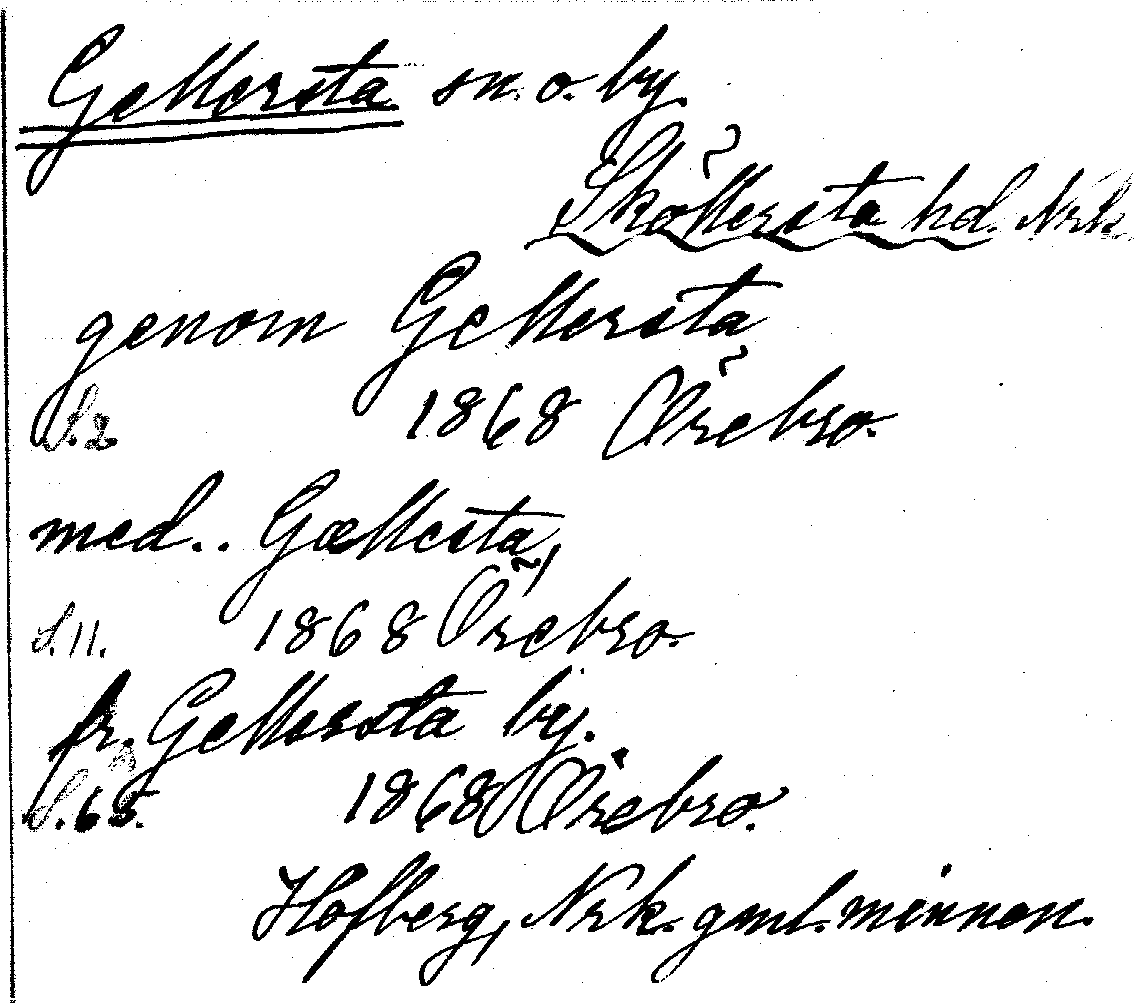 Gellersta sn. o. by.
Sköllersta hd. Nrk.
genom Gellersta
S. 2 1868 Örebro.
med.. Gællesta,
S. 11. 1868 Örebro.
fr. Gellersta by.
S. 65. 1868 Örebro.
Hofberg, Nrk. gml. minnen.